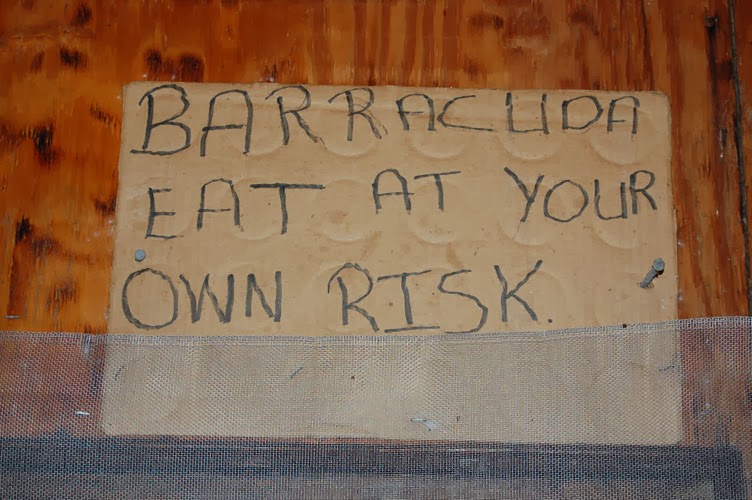 BARRACUDA
EAT AT YOUR
OWN RISK.